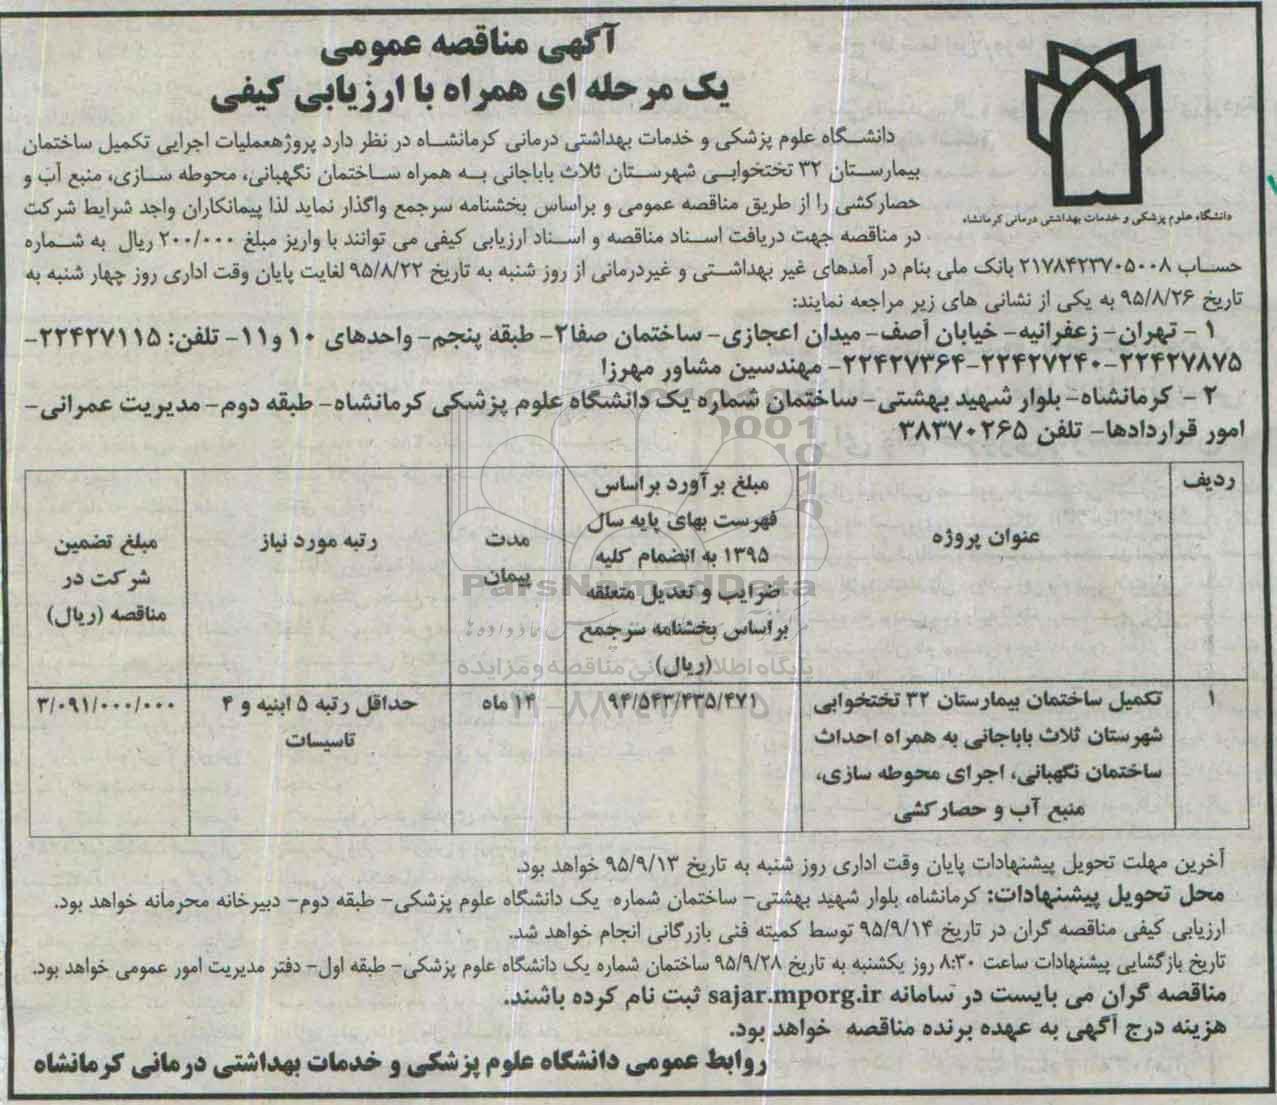 آگهی مناقصه عمومی
یک مرحله ای همراه با ارزیابی کیفی
دانشگاه علوم پزشکی و خدمات بهداشتی درمانی کرمانشاه
دانشگاه علوم پزشکی و خدمات بهداشتی درمانی کرمانشاه در نظر دارد پروژهعملیات اجرایی تکمیل ساختمان
بیمارستان ۳۲ تختخوابی شهرستان ثلاث باباجانی به همراه ساختمان نگهبانی، محوطه سازی، منبع آب و
حصارکشی را از طریق مناقصه عمومی و براساس بخشنامه سرجمع واگذار نماید لذا پیمانکاران واجد شرایط شرکت
در مناقصه جهت دریافت اسناد مناقصه و اسناد ارزیابی کیفی می توانند با واریز مبلغ ۲۰۰/۰۰۰ ریال به شماره
حساب ۲۱۷۸۴۲۳۷۰۵۰۰۸ بانک ملی بنام در آمدهای غیر بهداشتی و غیردرمانی از روز شنبه به تاریخ ۹۵/۸/۲۲ لغایت پایان وقت اداری روز چهار شنبه به
تاریخ ۹۵/۸/۲۶ به یکی از نشانی های زیر مراجعه نمایند:
۱ - تهران- زعفرانیه- خیابان آصف- میدان اعجازی- ساختمان صفا۲- طبقه پنجم- واحدهای ۱۰ و۱۱- تلفن: ۲۲۴۲۷۱۱۵-
۲۲۴۲۷۸۷۵-۲۲۴۲۷۲۴۰-۲۲۴۲۷۳۶۴- مهندسین مشاور مهرزا
۲ - کرمانشاه- بلوار شهید بهشتی- ساختمان شماره یک دانشگاه علوم پزشکی کرمانشاه- طبقه دوم- مدیریت عمرانی-
امور قراردادها- تلفن ۳۸۳۷۰۲۶۵
ردیف
عنوان پروژه
مبلغ برآورد براساس
فهرست بهای پایه سال
۱۳۹۵ به انضمام کلیه
ضرایب و تعدیل متعلقه
براساس بخشنامه سرجمع
(ریال)
مدت
پیمان
رتبه مورد نیاز
مبلغ تضمین
شرکت در
مناقصه (ریال)
۱
تکمیل ساختمان بیمارستان ۳۲ تختخوابی
شهرستان ثلاث باباجانی به همراه احداث
ساختمان نگهبانی، اجرای محوطه سازی،
منبع آب و حصارکشی
۹۴/۵۴۳/۴۳۵/۴۷۱
۱۴ ماه
حداقل رتبه ۵ ابنیه و ۴
تاسیسات
۳/۰۹۱/۰۰۰/۰۰۰
ParsNamadData
پایگاه اطلاع رسانی مناقصه و مزایده
آخرین مهلت تحویل پیشنهادات پایان وقت اداری روز شنبه به تاریخ ۹۵/۹/۱۳ خواهد بود.
محل تحویل پیشنهادات: کرمانشاه، بلوار شهید بهشتی- ساختمان شماره یک دانشگاه علوم پزشکی- طبقه دوم- دبیرخانه محرمانه خواهد بود.
ارزیابی کیفی مناقصه گران در تاریخ ۹۵/۹/۱۴ توسط کمیته فنی بازرگانی انجام خواهد شد.
تاریخ بازگشایی پیشنهادات ساعت ۸:۳۰ روز یکشنبه به تاریخ ۹۵/۹/۲۸ ساختمان شماره یک دانشگاه علوم پزشکی- طبقه اول- دفتر مدیریت امور عمومی خواهد بود.
مناقصه گران می بایست در سامانه sajar.mporg.ir ثبت نام کرده باشند.
هزینه درج آگهی به عهده برنده مناقصه خواهد بود.
روابط عمومی دانشگاه علوم پزشکی و خدمات بهداشتی درمانی کرمانشاه